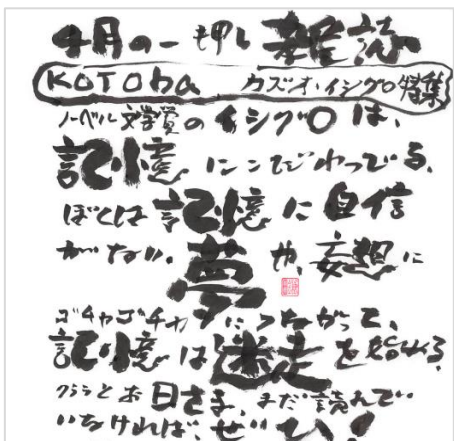 4月の一押し 雑誌
KOTOba カズオ・イシグロ特集
ノーベル文学賞のイシグロは、
記憶にこだわってる。
ぼくは記憶に自信
がない。夢や、妄想に
ゴチャゴチャにつながって、
記憶は迷走を始める。
クララとお日さま、まだ読んで
いなければ、ぜひ!